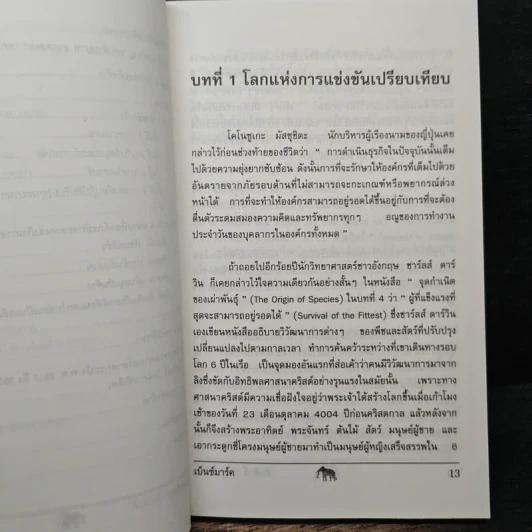 บทที่ 1 โลกแห่งการแข่งขันเปรียบเทียบ
โคโนซูเกะ มัสซูชิตะ นักบริหารผู้เรืองนามของญี่ปุ่นเคย
กล่าวไว้ก่อนช่วงท้ายของชีวิตว่า " การดำเนินธุรกิจในปัจจุบันนั้นเต็ม
ไปด้วยความยุ่งยากซับซ้อน ดังนั้นการที่จะรักษาให้องค์กรที่เต็มไปด้วย
อันตรายจากภัยรอบด้านที่ไม่สามารถจะคะเกณฑ์หรือพยากรณ์ล่วง
หน้าได้ การที่จะทำให้องค์กรสามารถอยู่รอดได้ขึ้นอยู่กับการที่จะต้อง
ตื่นตัวระดมสมองความคิดและทรัพยากรทุกๆ อณูของการทำงาน
ประจำวันของบุคลากรในองค์กรทั้งหมด "
ถ้าถอยไปอีกร้อยปีนักวิทยาศาสตร์ชาวอังกฤษ ชาร์ลส์ ดาร์
วิน ก็เคยกล่าวไว้ใจความเดียวกันอย่างสั้นๆ ในหนังสือ " จุดกำเนิด
ของเผ่าพันธุ์ " (The Origin of Species) ในบทที่ 4 ว่า " ผู้ที่แข็งแรงที่
สุดจะสามารถอยู่รอดได้ " (Survival of the Fittest) ซึ่งชาร์ลส์ ดาร์วิน
เองเขียนหนังสืออธิบายวิวัฒนาการต่างๆ ของพืชและสัตว์ที่ปรับปรุง
เปลี่ยนแปลงไปตามกาลเวลา ทำการค้นคว้าระหว่างที่เขาเดินทางรอบ
โลก 6 ปีในเรือ เป็นจุดมองอันแรกที่ส่อเค้าว่าคนมีวิวัฒนาการมาจาก
ลิงซึ่งขัดกับอิทธิพลศาสนาคริสต์อย่างรุนแรงในสมัยนั้น เพราะทาง
ศาสนาคริสต์มีความเชื่อฝังใจอยู่ว่าพระเจ้าได้สร้างโลกขึ้นเมื่อเก้าโมง
เช้าของวันที่ 23 เดือนตุลาคม 4004 ปีก่อนคริสตกาล แล้วหลังจาก
นั้นก็จึงสร้างพระอาทิตย์ พระจันทร์ ต้นไม้ สัตว์ มนุษย์ผู้ชาย และ
เอากระดูกซี่โครงมนุษย์ผู้ชายมาทำเป็นมนุษย์ผู้หญิงเสร็จสรรพใน 6
เบ็นช์มาร์ค 13